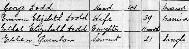 George Dodd Head 44 Married
Emma Elizabeth Dodd Wife 39 Married
Ethel Elizabeth Dodd Daughter
Ellen Quinton Servant 21 Single